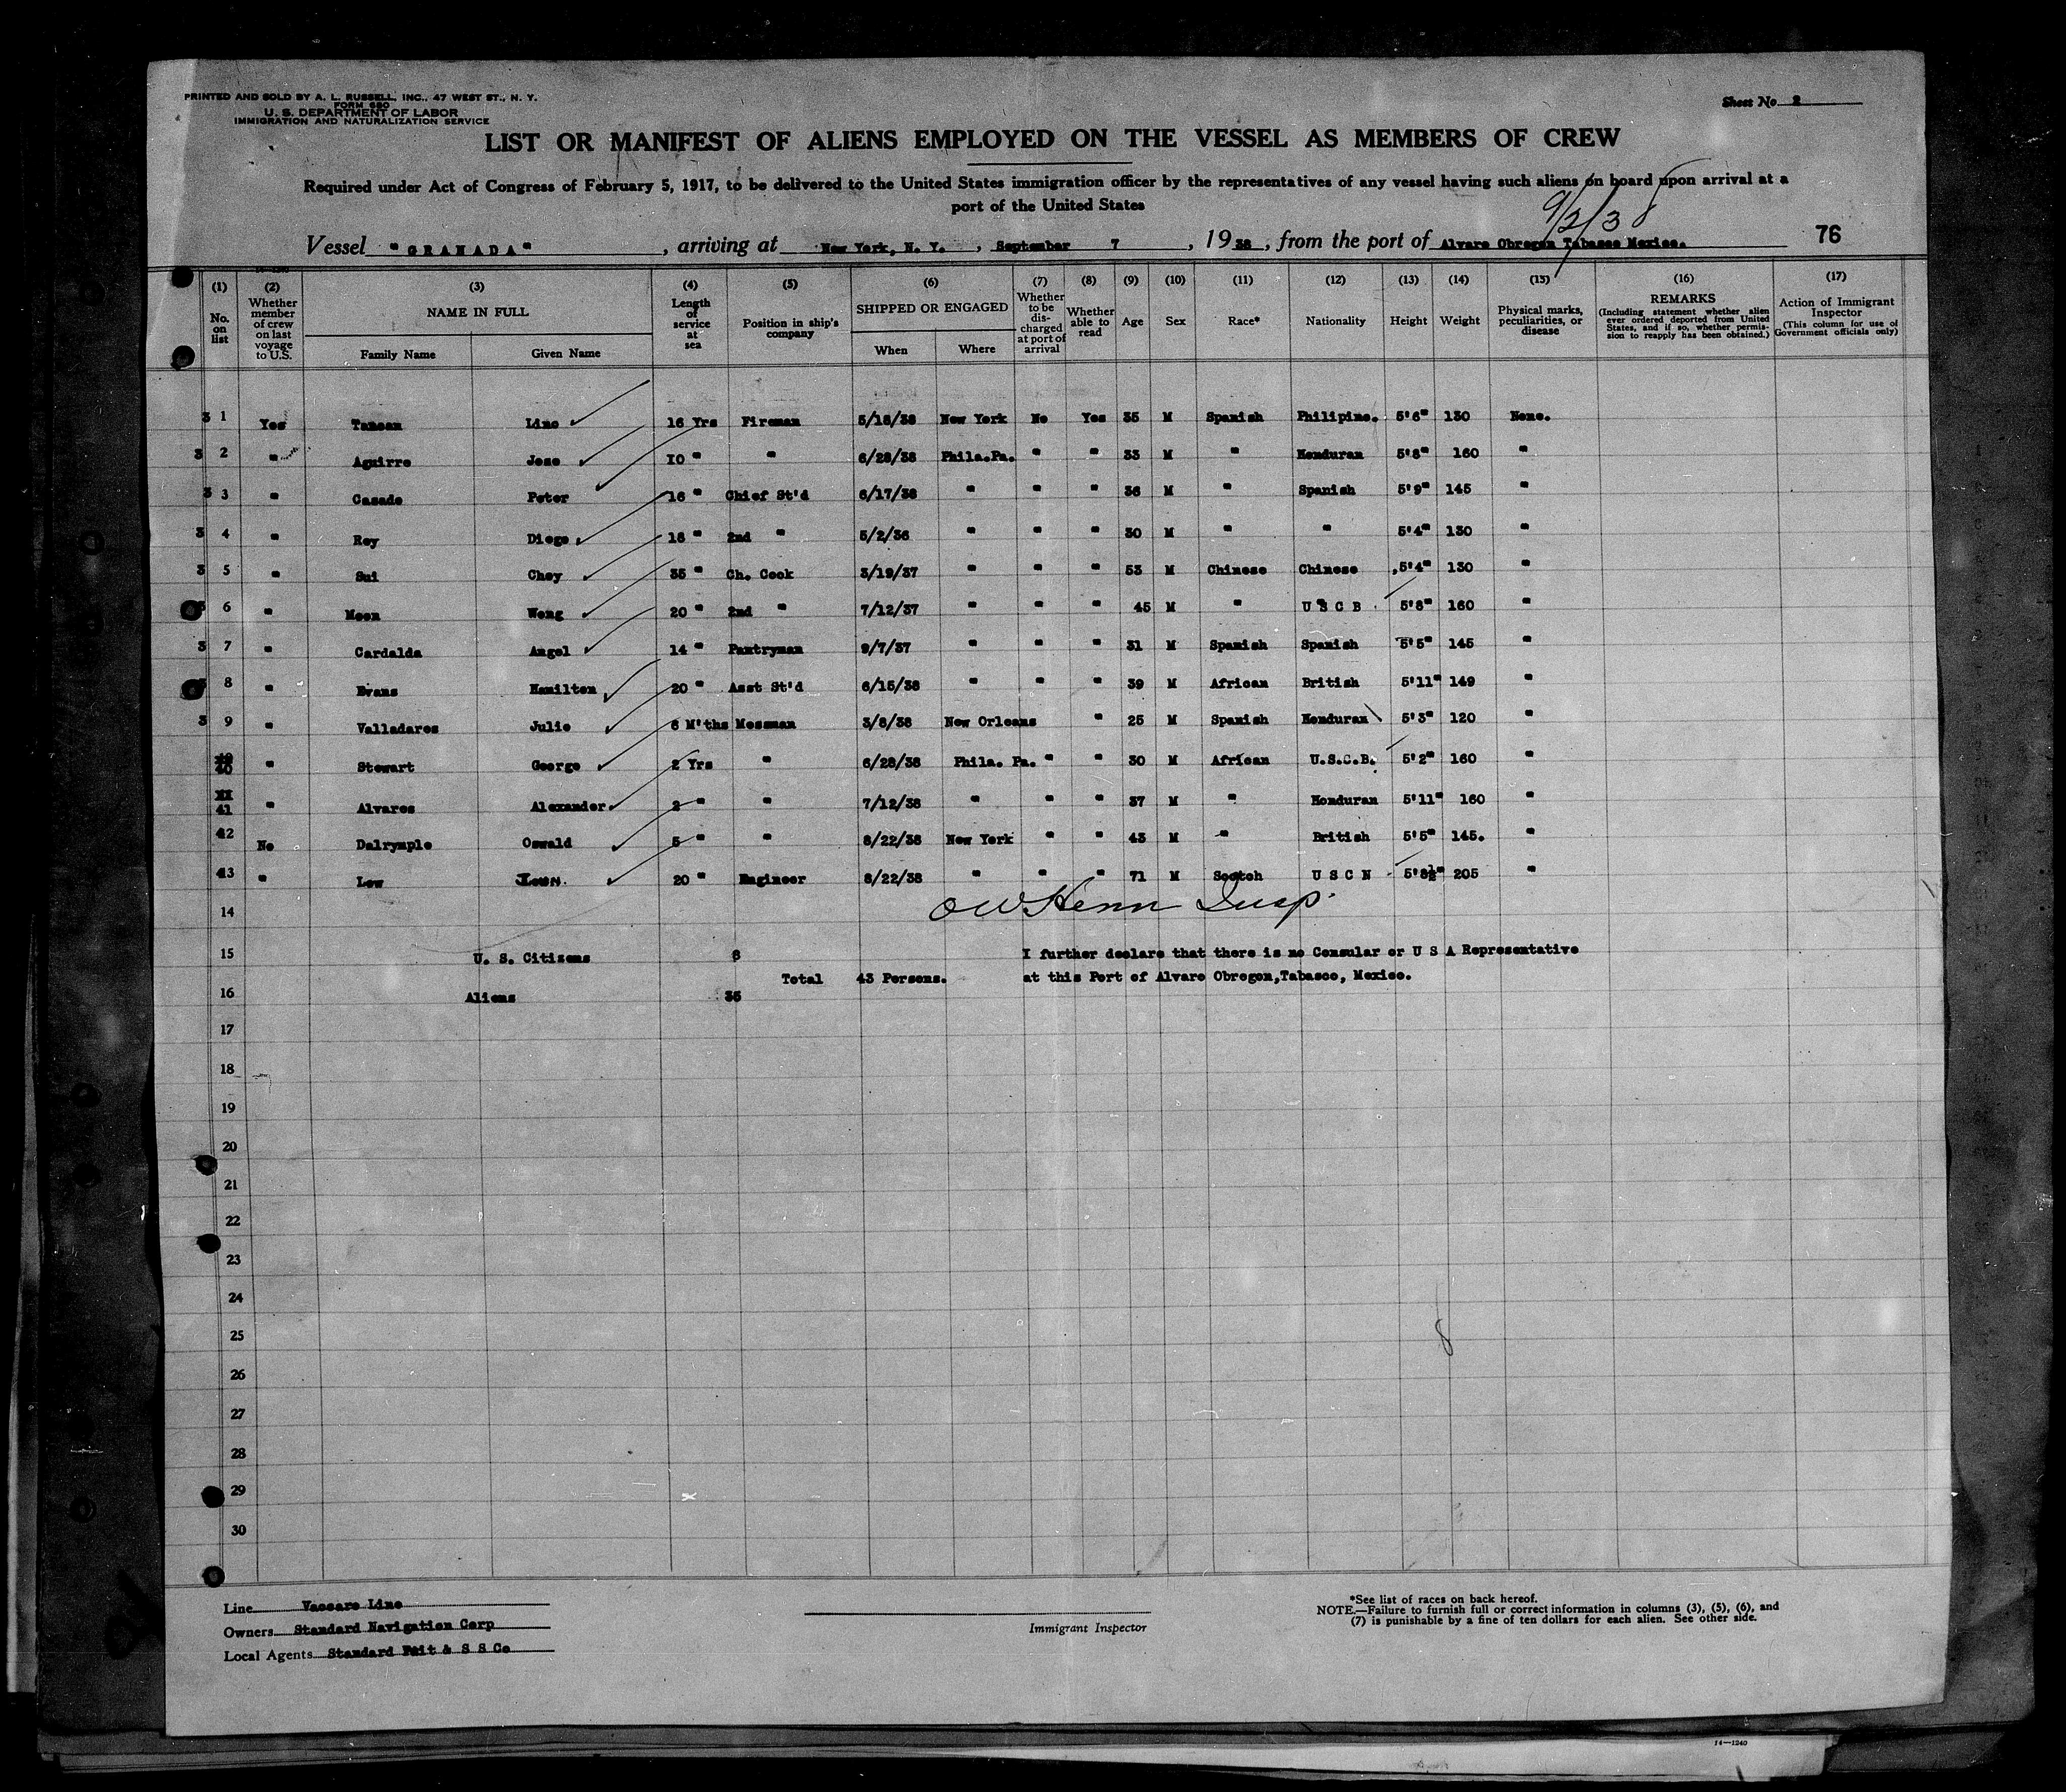 PRINTED AND SOLD BY A. L. RUSSELL, INC., 47 WEST ST., N. Y.
FORM 680
U. S. DEPARTMENT OF LABOR
IMMIGRATION AND NATURALIZATION SERVICE
Sheet No. 2
LIST OR MANIFEST OF ALIENS EMPLOYED ON THE VESSEL AS MEMBERS OF CREW
Required under Act of Congress of February 5, 1917, to be delivered to the United States immigration officer by the representatives of any vessel having such aliens on board upon arrival at a
port of the United States
9/2/38
Vessel "GRANADA", arriving at New York, N. Y., September 7, 1938, from the port of Alvaro Obregon Tabasco Mexico. 76
(1) (2) (3) (4) (5) (6) (7) (8) (9) (10) (11) (12) (13) (14) (15) (16) (17)
No. on list
Whether member of crew on last voyage to U.S.
NAME IN FULL
Family Name
Given Name
Length of service at sea
Position in ship's company
SHIPPED OR ENGAGED
When
Where
Whether to be discharged at port of arrival
Whether able to read
Age
Sex
Race*
Nationality
Height
Weight
Physical marks, peculiarities, or disease
REMARKS
(Including statement whether alien ever ordered deported from United States, and if so, whether permission to reapply has been obtained.)
Action of Immigrant Inspector
(This column for use of Government officials only)
3 1 Yes Tansan Lino 16 Yrs Fireman 5/18/38 New York No Yes 35 M Spanish Philipine. 5'6" 130 None.
3 2 " Aguirre Jose 10 " " 6/28/38 Phila.Pa. " " 33 M " Honduran 5'8" 160 "
3 3 " Casado Peter 16 " Chief St'd 6/17/38 " " " 36 M " Spanish 5'9" 145 "
3 4 " Rey Diego 18 " 2nd " 5/2/36 " " " 30 M " " 5'4" 130 "
3 5 " Sui Choy 35 " Ch. Cook 3/19/37 " " " 53 M Chinese Chinese 5'4" 130 "
3 6 " Moon Wong 20 " 2nd " 7/12/37 " " " 45 M " U S C B 5'8" 160 "
3 7 " Cardalda Angel 14 " Pantryman 9/7/37 " " " 31 M Spanish Spanish 5'5" 145 "
3 8 " Evans Hamilton 20 " Asst St'd 6/15/38 " " " 39 M African British 5'11" 149 "
3 9 " Valladares Julio 8 M'ths Messman 3/8/38 New Orleans " 25 M Spanish Honduran 5'3" 120 "
40 " Stewart George 2 Yrs " 6/28/38 Phila. Pa. " " 30 M African U.S.C.B. 5'2" 160 "
41 " Alvares Alexander 2 " " 7/12/38 " " " 37 M " Honduran 5'11" 160 "
42 No Dalrymple Oswald 5 " " 8/22/38 New York " " 43 M " British 5'5" 145. "
43 " Low 20 " Engineer 8/22/38 " " " 71 M Scotch U S C N 5'8½" 205 "
14 O W Henn Insp.
15 U. S. Citizens 8 I further declare that there is no Consular or U S A Representative
Total 43 Persons. at this Port of Alvaro Obregon,Tabasco, Mexico.
16 Aliens 35
17
18
19
20
21
22
23
24
25
26
27
28
29
30
8
Line Vaccaro Line
Owners Standard Navigation Corp
Local Agents Standard Fruit & S S Co
Immigrant Inspector
*See list of races on back hereof.
NOTE.—Failure to furnish full or correct information in columns (3), (5), (6), and
(7) is punishable by a fine of ten dollars for each alien. See other side.
14—1240